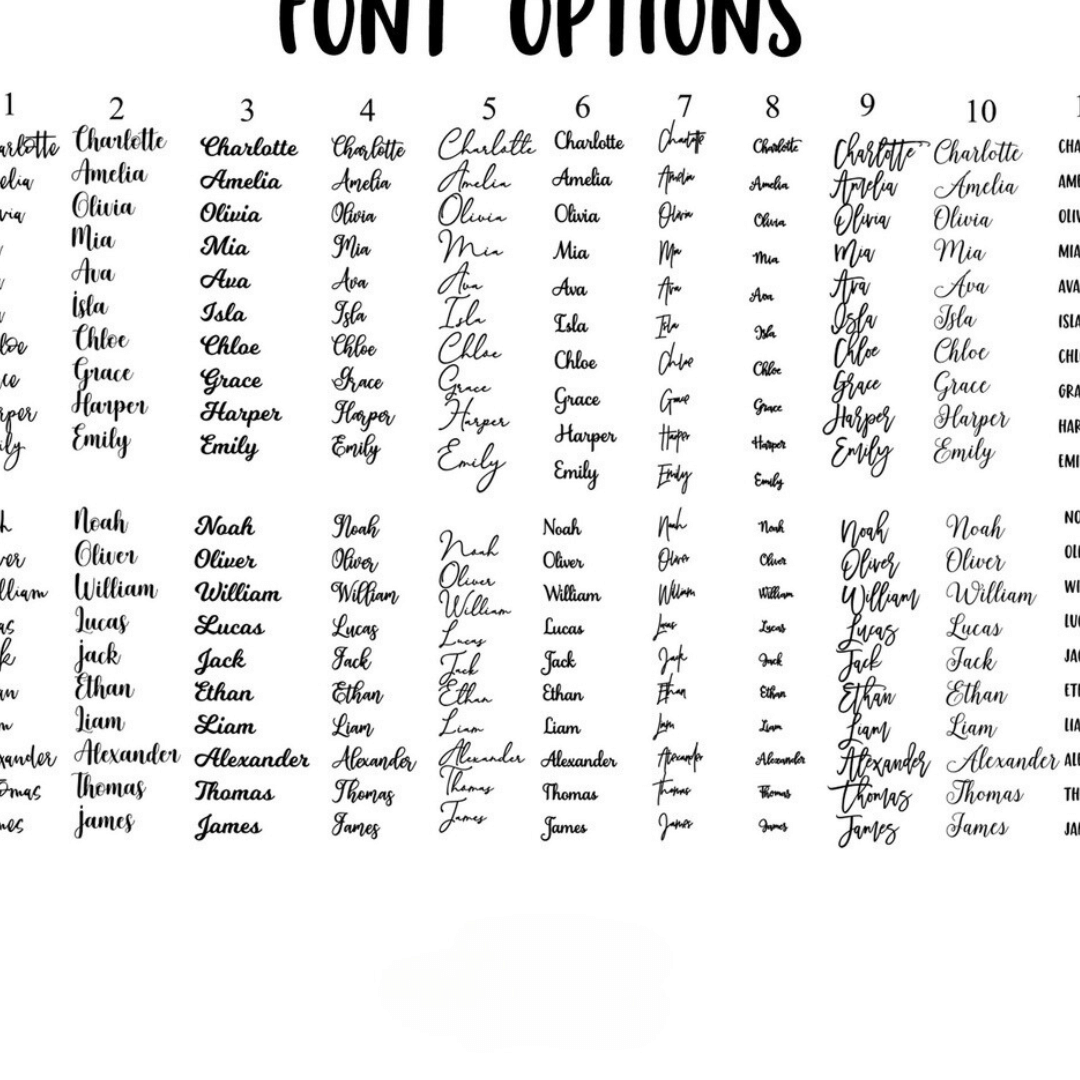 FONT OPTIONS
1 2 3 4 5 6 7 8 9 10 1
arlotte Charlotte Charlotte Charlotte Charlotte Charlotte Charlotte Charlotte Charlotte Charlotte CHA
elia Amelia Amelia Amelia Amelia Amelia Amelia Amelia Amelia Amelia AME
via Olivia Olivia Olivia Olivia Olivia Olivia Olivia Olivia Olivia OLIV
Mia Mia Mia Mia Mia Mia Mia Mia Mia MIA
Ava Ava Ava Ava Ava Ava Ava Ava Ava AVA
isla Isla Isla Isla Isla Isla Isla Isla Isla ISLA
loe Chloe Chloe Chloe Chloe Chloe Chloe Chloe Chloe Chloe CHL
ce Grace Grace Grace Grace Grace Grace Grace Grace Grace GRA
rper Harper Harper Harper Harper Harper Harper Harper Harper Harper HAR
ily Emily Emily Emily Emily Emily Emily Emily Emily Emily EMI
h Noah Noah Noah Noah Noah Noah Noah Noah Noah NO
ver Oliver Oliver Oliver Oliver Oliver Oliver Oliver Oliver Oliver OLI
lliam William William William William William William William William William WI
as Lucas Lucas Lucas Lucas Lucas Lucas Lucas Lucas Lucas LUC
k jack Jack Jack Jack Jack Jack Jack Jack Jack JAC
an Ethan Ethan Ethan Ethan Ethan Ethan Ethan Ethan Ethan ETH
m Liam Liam Liam Liam Liam Liam Liam Liam Liam LIA
xander Alexander Alexander Alexander Alexander Alexander Alexander Alexander Alexander Alexander ALE
omas Thomas Thomas Thomas Thomas Thomas Thomas Thomas Thomas Thomas TH
mes james James James James James James James James James JA